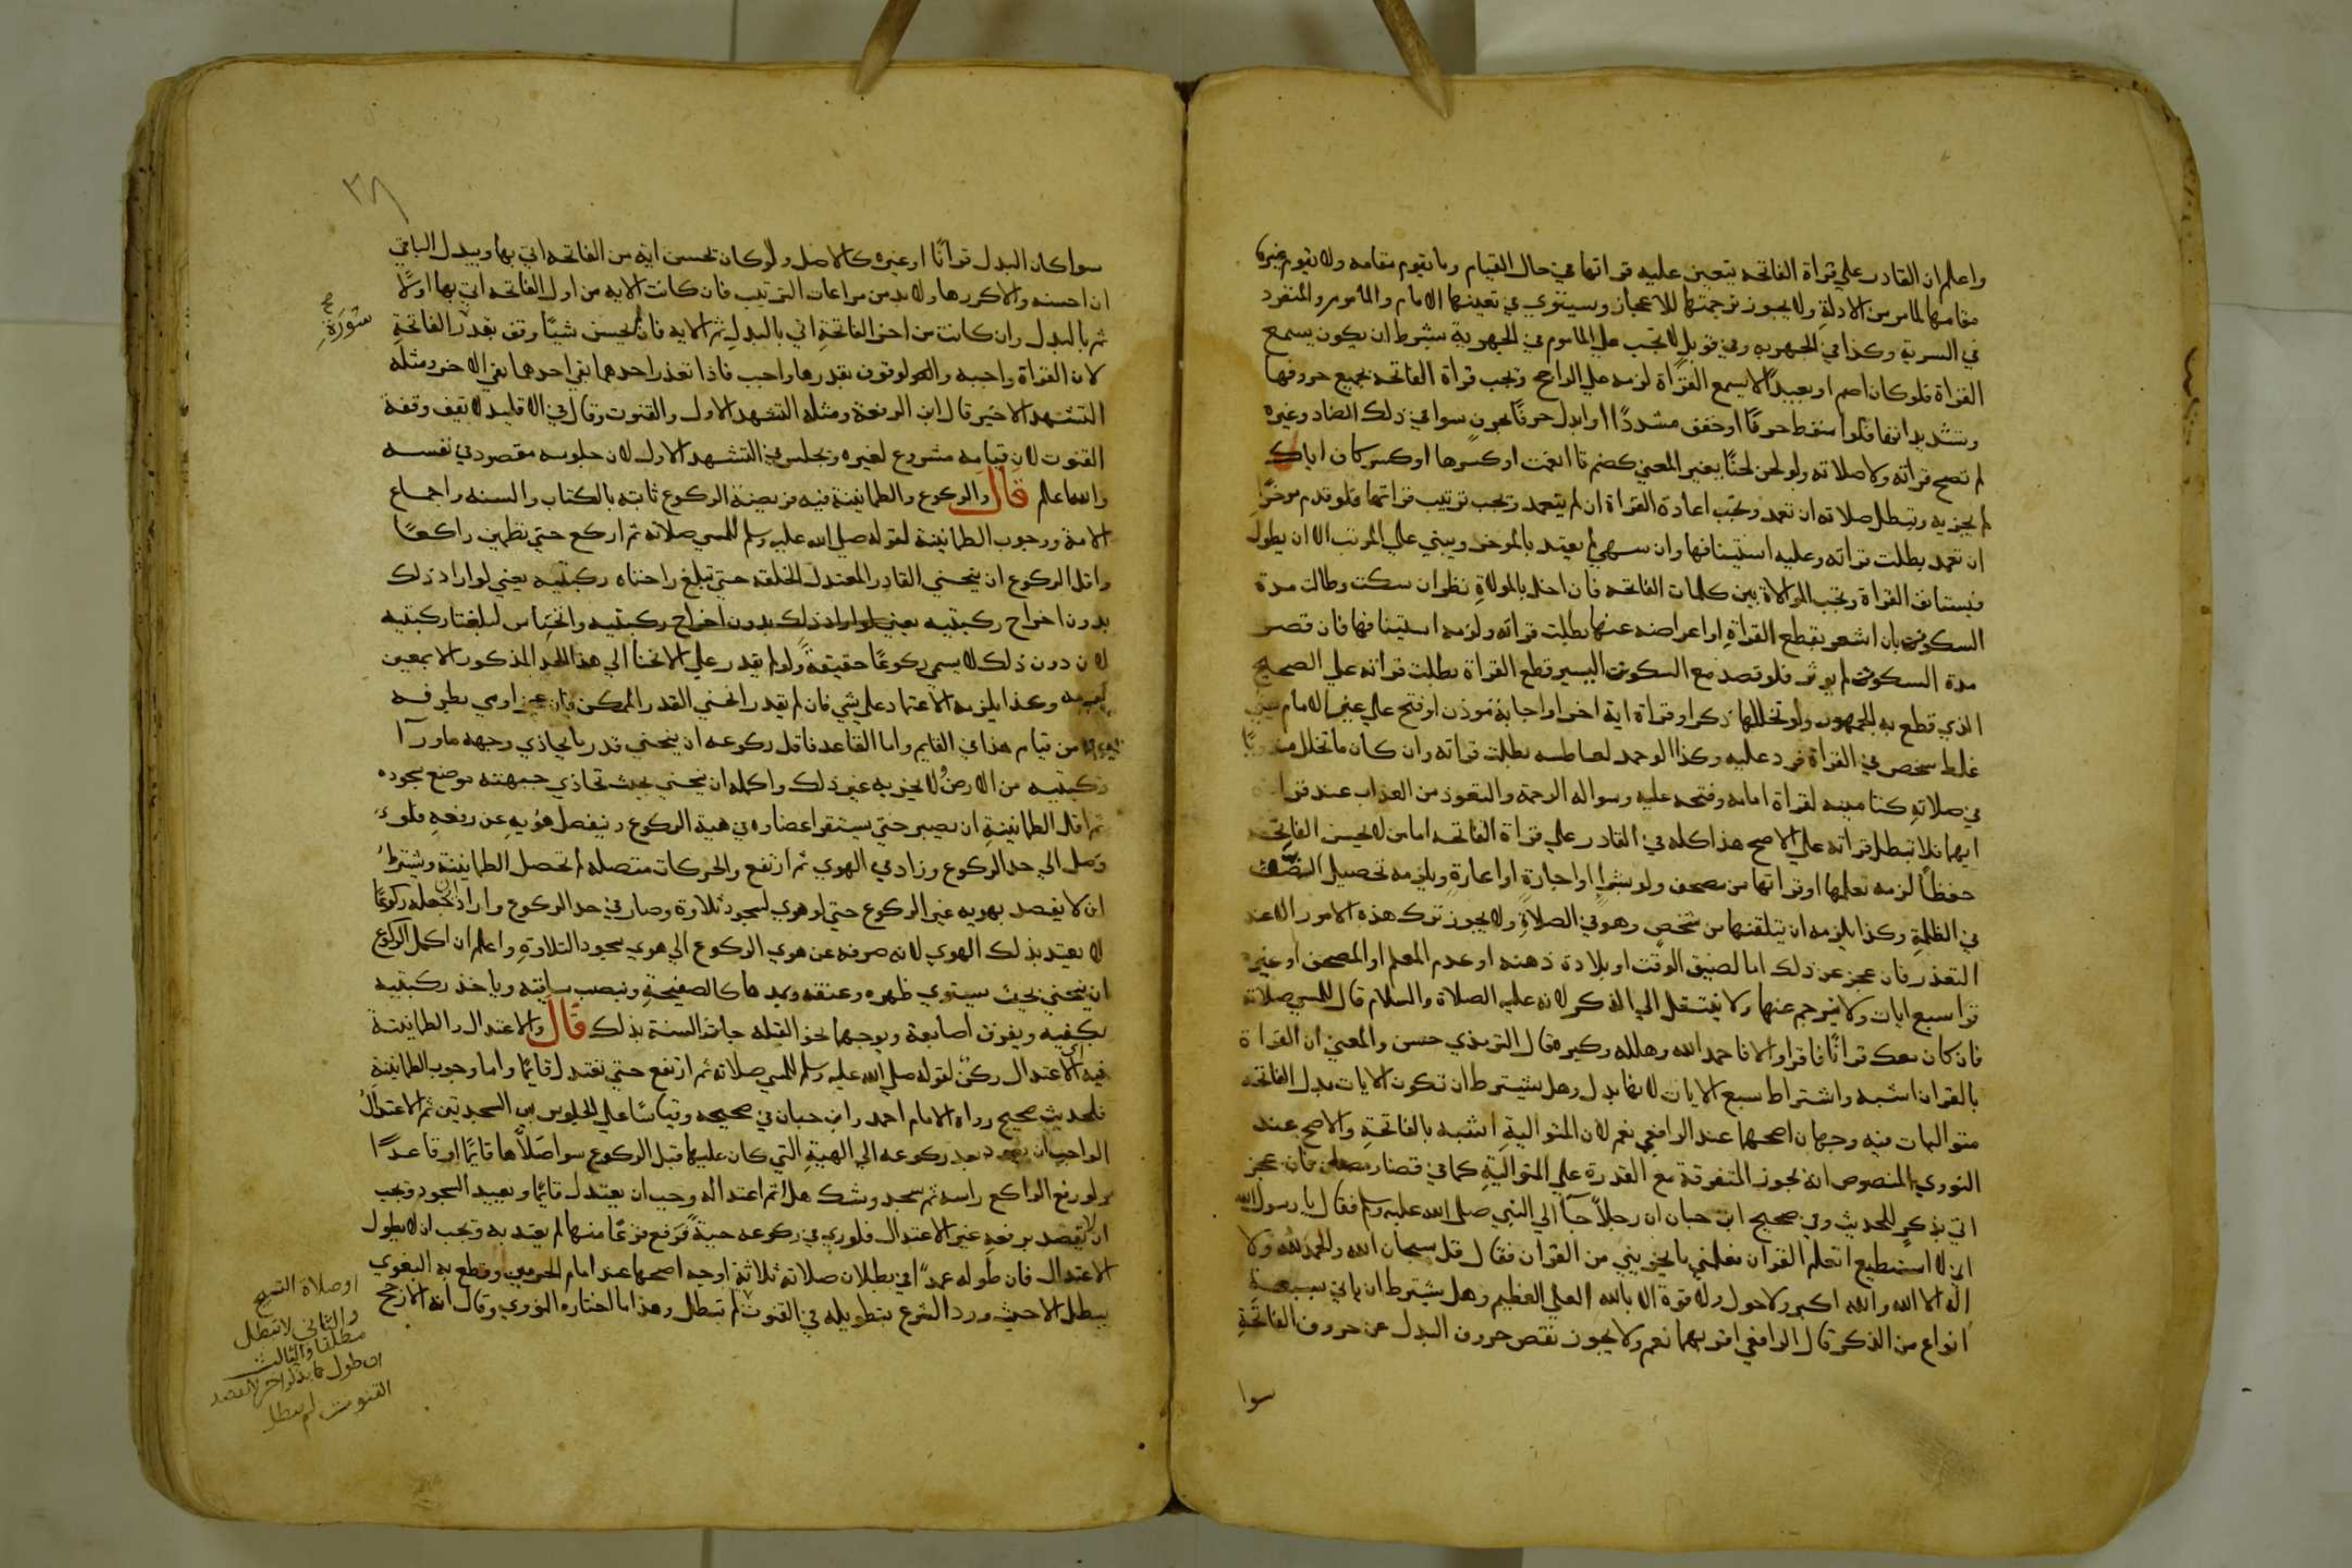 واعلم ان القادر علي قراة الفاتحه يتعين عليه قراتها في حال القيام وما يقوم مقامه ولا يقوم غيرها
مقامها لما مر من الادلةِ ولا يجوز ترجمتها للاعجاز وسيتوي في تعينها الامام والماموم والمنفرد
في السرية وكذا في الجهريه وفي قول لا تجب علي الماموم في الجهرية بشرط ان يكون يسمع
القراة فلو كان اصم او بعيدًا لا يسمع القراة لزمه علي الراجح وتجب قراة الفاتحه بجميع حروفها
وتشديداتها فلو اسقط حرفًا او خفف مشددًا او ابدل حرفًا بحرفٍ سوا في ذلك الضاد وغيره
لم تصح قراته ولا صلاته ولو لحن لحنًا يغير المعني كضم تا انعمت او كسرها او كسر كاف اياك
لم يجزيه وتبطل صلاته ان تعمد وتجب اعادة القراة ان لم يتعمد وتجب ترتيب قراتها فلو قدم موخرًا
ان تعمد بطلت قراته وعليه استينافها وان سهي لم يعتد بالموخر ويبني علي المرتب الا ان يطول
فيستانف القراة وتجب الموالاة بين كلمات الفاتحه فان اخل بالموالاةِ نظر ان سكت وطالت مدة
السكوت بان اشعر بقطع القراةِ او اعراضه عنها بطلت قراته ولزمه استينافها فان قصر
مدة السكوت لم يوثر فلو قصد مع السكوت اليسير قطع القراة بطلت قراته علي الصحيح
الذي قطع به الجمهور ولو تخللها ذكر او قراة اية اخرا او اجابة موذن او فتح علي غير الامام
غلط شخص في القراة فرد عليه وكذا لو حمد لعاطسه بطلت قراته وان كان ما تخلل
في صلاتهِ كتامينه لقراة امامه وفتحه عليه وسواله الرحمة والتعوذ من العذاب عند
ايهما فلا تبطل قراته علي الاصح هذا كله في القادر علي قراة الفاتحه اما من لا يحسن الفاتحه
حفظًا لزمه تعلمها او قراتها من مصحف ولو بشراءٍ او اجارةٍ او اعارةٍ ويلزمه تحصيل
في الظلمةِ وكذا يلزمه ان يتلقنها من شخصٍ وهو في الصلاةِ ولا يجوز ترك هذه الامور الا عند
التعذر فان عجز عن ذلك اما لضيق الوقت او بلادة ذهنه او عدم المعلم او المصحف او غيره
قرا سبع ايات ولا يترجم عنها ولا ينتقل الي الذكر لانه عليه الصلاة والسلام قال للمسي صلاته
فان كان معك قرانًا فاقرا والا فاحمد الله وهلله وكبره قال الترمذي حسن والمعني ان القراة
بالقران اشبه واشتراط سبع الايات لانها بدل وهل يشترط ان تكون الايات بدل الفاتحه
متواليات فيه وجهان اصحهما عند الرافعي نعم لان المتواليةِ اشبه بالفاتحةِ والاصح عند
النووي المنصوص انه يجوز المتفرقة مع القدرة علي المتواليةِ كما في قضا رمضان فان عجز
اتي بذكر للحديث وفي صحيح ابن حبان ان رجلًا جآ الي النبي صلي الله عليه وسلم فقال يا رسول الله
اني لا استطيع اتعلم القران فعلمني ما يجزيني من القران فقال قل سبحان الله والحمد لله ولا
اله الا الله والله اكبر ولا حول ولا قوة الا بالله العلي العظيم وهل يشترط ان ياتي بسبعة
انواع من الذكر قال الرافعي اقربهما نعم ولا يجوز نقص حروف البدل عن حروف الفاتحةِ
سوا
٣٨
سوا كان البدل قرانًا او غيره كالاصل ولو كان يحسن اية من الفاتحه اتي بها ويبدل الباقي
ان احسنه والا كررها ولا بد من مراعات الترتيب فان كانت الايه من اول الفاتحه اتي بها اولًا
ثم بالبدل وان كانت من اخر الفاتحةِ اتي بالبدلِ ثم الايه فان لم يحسن شيًا وقف بقدر الفاتحةِ
سُورَةِ
لان القراة واجبه والوقوف بقدرها واجب فاذا تعذر احدهما بقي الاخر ومثله
التشهد الاخير قال ابن الرفعة ومثله التشهد الاول والقنوت وقال في الاقليد لا يقف وقفة
القنوت لان قيامه مشروع لغيره ويجلس في التشهد الاول لان جلوسه مقصود في نفسه
والله اعلم قال والركوع والطمانينة فيه فريضة الركوع ثابته بالكتاب والسنه واجماع
الامة ووجوب الطمانينة لقوله صلي الله عليه وسلم للمسي صلاته ثم اركع حتي تطمين راكعًا
واقل الركوع ان ينحني القادر المعتدل الخلقه حتي تبلغ راحتاه ركبتيه يعني لو اراد ذلك
بدون اخراج ركبتيه يعني لو اراد ذلك بدون اخراج ركبتيه وانخناس لبلغتا ركبتيه
لان دون ذلك لا يسمي ركوعًا حقيقةً ولو لم يقدر علي الانحنا الي هذا الحد المذكور الا بمعين
لزمه وكذا يلزمه الاعتماد علي شي فان لم يقدر انحني القدر الممكن فان عجز اومي بطرفه
من قيام هذا في القايم واما القاعد فاقل ركوعه ان ينحني قدر ما يحاذي وجهه ما ورآ
ركبتيه من الارض ولا يجزيه غير ذلك واكمله ان ينحني بحيث تحاذي جبهته موضع سجوده
ثم اقل الطمانينةِ ان يصبر حتي يستقر اعضاوه في هيئة الركوع وينفصل هُوِّيهِ عن رفعهِ فلو
وصل الي حد الركوع وزاد في الهوي ثم ارتفع والحركات متصله لم تحصل الطمانينة ويشترط
ان لا يقصد بهويه غير الركوع حتي لو هوي لسجود تلاوة وصار في حد الركوع واراد ان يجعله ركوعًا
لا يعتد بذلك الهوي لانه صرفه عن هوي الركوع الي هوي سجود التلاوةِ واعلم ان اكمل الركوع
ان ينحني بحيث يستوي ظهره وعنقه ويمدها كالصفيحةِ وينصب ساقيه وياخذ ركبتيه
بكفيه ويفرق اصابعه ويوجهها نحو القبله جات السنة بذلك قال والاعتدال والطمانينة
فيه الاعتدال ركن لقوله صلي الله عليه وسلم للمسي صلاته ثم ارتفع حتي تعتدل قايمًا واما وجوب الطمانينة
فلحديث صحيح رواه الامام احمد وابن حبان في صحيحه وقياسًا علي الجلوس بين السجدتين ثم الاعتدالُ
الواجب ان يعود بعد ركوعه الي الهيئةِ التي كان عليها قبل الركوع سوا صلاها قايمًا او قاعدًا
ولو رفع الراكع راسه ثم سجد وشك هل اتم اعتداله وجب ان يعتدل قايمًا ويعيد السجود ويجب
ان لا يقصد برفعهِ غير الاعتدال فلو راي في ركوعه حيةً فرفع فزعًا منها لم يعتد به وتجب ان لا يطول
الاعتدال فان طوله عمدًا ففي بطلان صلاته ثلاثة اوجه اصحها عند امام الحرمين وقطع به البغوي
يبطل الا حيث ورد الشرع بتطويله في القنوت لم تبطل وهذا ما اختاره النووي وقال انه الارجح
او صلاة التسبيح
والثاني لا تبطل
مطلقا والثالث
ان طول بذكر اخر لا بقصد
القنوت لم يبطل